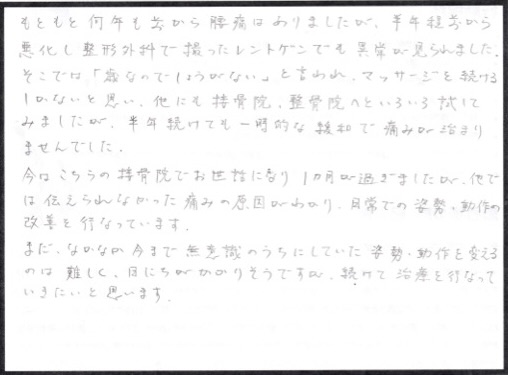 もともと何年も前から腰痛はありましたが、半年程前から
悪化し整形外科で撮ったレントゲンでも異常が見られました。
そこでは「癖なのでしょうがない」と言われ、マッサージを続ける
しかないと思い、他にも接骨院、整骨院へといろいろ試して
みましたが、半年続けても一時的な緩和で痛みが治まり
ませんでした。
今はこちらの接骨院でお世話になり1カ月が過ぎましたが、他で
は伝えられなかった痛みの原因がわかり、日常での姿勢・動作の
改善を行なっています。
まだ、なかなか今まで無意識のうちにしていた姿勢・動作を変える
のは難しく、日にちがかかりそうですが、続けて治療を行なって
いきたいと思います。